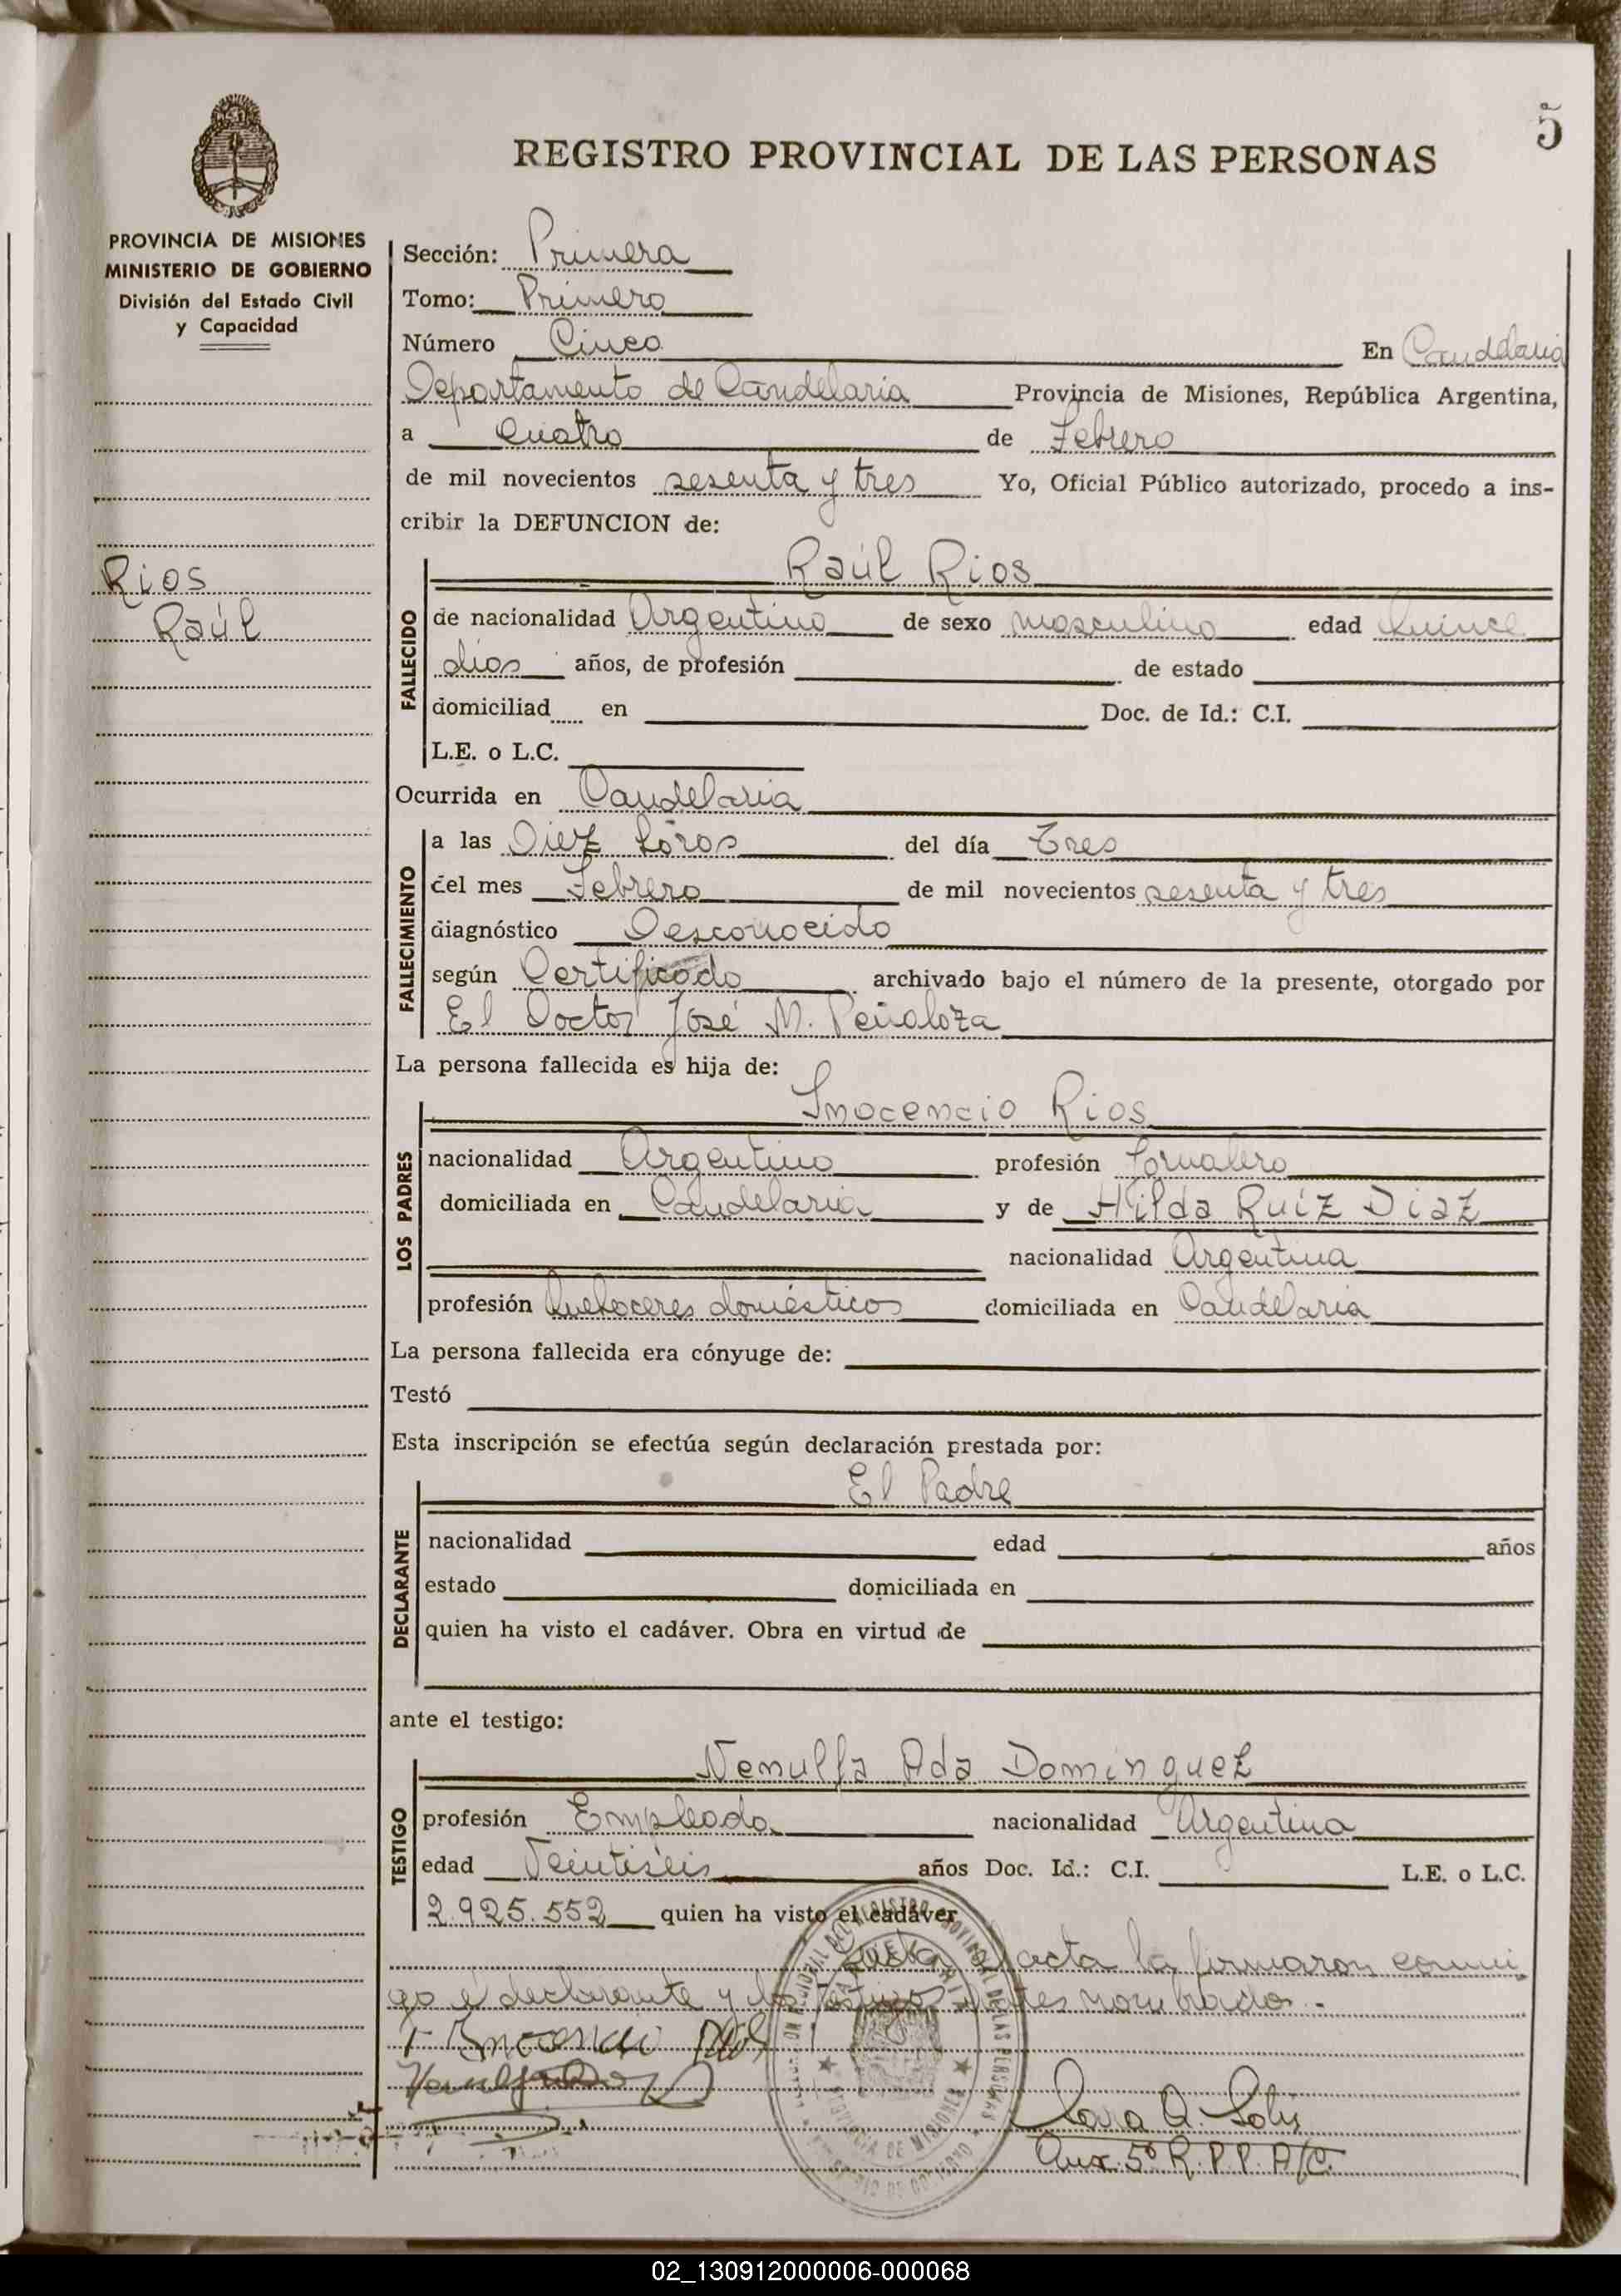 5
REGISTRO PROVINCIAL DE LAS PERSONAS
PROVINCIA DE MISIONES
MINISTERIO DE GOBIERNO
División del Estado Civil
y Capacidad
Rios
Raúl
Sección: Primera
Tomo: Primero
Número Cinco En Candelaria
Departamento de Candelaria Provincia de Misiones, República Argentina,
a Cuatro de Febrero
de mil novecientos sesenta y tres Yo, Oficial Público autorizado, procedo a ins-
cribir la DEFUNCION de:
FALLECIDO
Raúl Rios
de nacionalidad Argentino de sexo masculino edad Quince
días años, de profesión de estado
domiciliad en Doc. de Id.: C.I.
L.E. o L.C.
Ocurrida en Candelaria
FALLECIMIENTO
a las Diez horas del día Tres
del mes Febrero de mil novecientos sesenta y tres
diagnóstico Desconocido
según Certificado archivado bajo el número de la presente, otorgado por
El Doctor José M. Peñaloza
La persona fallecida es hija de:
LOS PADRES
Inocencio Rios
nacionalidad Argentino profesión Jornalero
domiciliada en Candelaria y de Hilda Ruíz Diaz
nacionalidad Argentina
profesión Quehaceres domésticos domiciliada en Candelaria
La persona fallecida era cónyuge de:
Testó
Esta inscripción se efectúa según declaración prestada por:
DECLARANTE
El Padre
nacionalidad edad años
estado domiciliada en
quien ha visto el cadáver. Obra en virtud de
ante el testigo:
TESTIGO
Nemulfa Ada Dominguez
profesión Empleada nacionalidad Argentina
edad Veintiséis años Doc. Id.: C.I. L.E. o L.C.
2.925.552 quien ha visto el cadáver
acta la firmaron conmi
go el declarante y los testigos antes nombrados.-
Inocencio Rios
Sara A. Solis
Aux. 5º R.P.P. A/C.
02_130912000006-000068